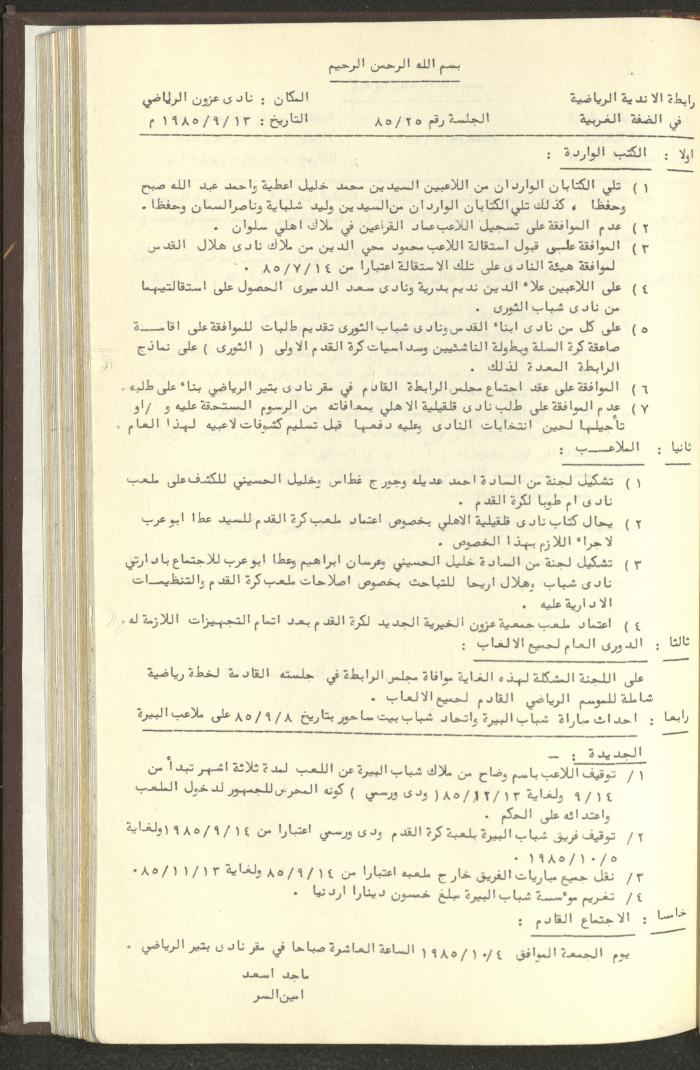 بسم الله الرحمن الرحيم
رابطة الاندية الرياضية المكان : نادى عزون الرياضي
في الضفة الغربية الجلسة رقم ٨٥/٢٥ التاريخ : ١٩٨٥/٩/١٣ م
اولا : الكتب الواردة :
١ ) تلي الكتابان الواردان من اللاعبين السيدين محمد خليل اعطية واحمد عبد الله صبح
وحفظا ، كذلك تلي الكتابان الواردان من السيدين وليد شلباية وناصر السمان وحفظا .
٢ ) عدم الموافقة على تسجيل اللاعب عماد القراعين في ملاك اهلي سلوان .
٣ ) الموافقة على قبول استقالة اللاعب محمود محي الدين من ملاك نادى هلال القدس
لموافقة هيئة النادى على تلك الاستقالة اعتبارا من ٨٥/٧/١٤ .
٤ ) على اللاعبين علاء الدين نديم بدرية ونادى سعد الدميرى الحصول على استقالتيهما
من نادى شباب الثورى .
٥ ) على كل من نادى ابناء القدس ونادى شباب الثورى تقديم طلبات للموافقة على اقامــــة
صاعقة كرة السلة وبطولة الناشئيين وسداسيات كرة القدم الاولى ( الثورى ) على نماذج
الرابطة المعدة لذلك .
٦ ) الموافقة على عقد اجتماع مجلس الرابطة القادم في مقر نادى بتير الرياضي بناء على طلبه .
٧ ) عدم الموافقة على طلب نادى قلقيلية الاهلي بمعافاته من الرسوم المستحقة عليه و /او
تأجيلها لحين انتخابات النادى وعليه دفعها قبل تسليم كشوفات لاعبيه لهذا العام .
ثانيا : الملاعــــب :
١ ) تشكيل لجنة من السادة احمد عديله وجورج غطاس وخليل الحسيني للكشف على ملعب
نادى ام طوبا لكرة القدم .
٢ ) يحال كتاب نادى قلقيلية الاهلي بخصوص اعتماد ملعب كرة القدم للسيد عطا ابو عرب
لاجراء اللازم بهذا الخصوص .
٣ ) تشكيل لجنة من السادة خليل الحسيني وعرسان ابراهيم وعطا ابو عرب للاجتماع بادارتي
نادى شباب وهلال اريحا للتباحث بخصوص اصلاحات ملعب كرة القدم والتنظيمــات
الادارية عليه .
٤ ) اعتماد ملعب جمعية عزون الخيرية الجديد لكرة القدم بعد اتمام التجهيزات اللازمة له .
ثالثا : الدورى العام لجميع الالعاب :
على اللجنة المشكلة لهذه الغاية موافاة مجلس الرابطة في جلسته القادمة لخطة رياضية
شاملة للموسم الرياضي القادم لجميع الالعاب .
رابعا : احداث مباراة شباب البيرة واتحاد شباب بيت ساحور بتاريخ ٨٥/٩/٨ على ملاعب البيرة
الجديدة : ــ
١/ توقيف اللاعب باسم وضاح من ملاك شباب البيرة عن اللعب لمدة ثلاثة اشهر تبدأ من
٩/١٤ ولغاية ٨٥/١٢/١٣ ( ودى ورسمي ) كونه المحرض للجمهور لدخول الملعب
واعتدائه على الحكم .
٢/ توقيف فريق شباب البيرة بلعبة كرة القدم ودى ورسمي اعتبارا من ١٩٨٥/٩/١٤ ولغاية
١٩٨٥/١٠/٥ .
٣/ نقل جميع مباريات الفريق خارج ملعبه اعتبارا من ٨٥/٩/١٤ ولغاية ٨٥/١١/١٣ .
٤/ تغريم موٴسسة شباب البيرة مبلغ خمسون دينارا اردنيا .
خامسا : الاجتماع القادم :
يوم الجمعة الموافق ١٩٨٥/١٠/٤ الساعة العاشرة صباحا في مقر نادى بتير الرياضي .
ماجد اسعد
امين السر